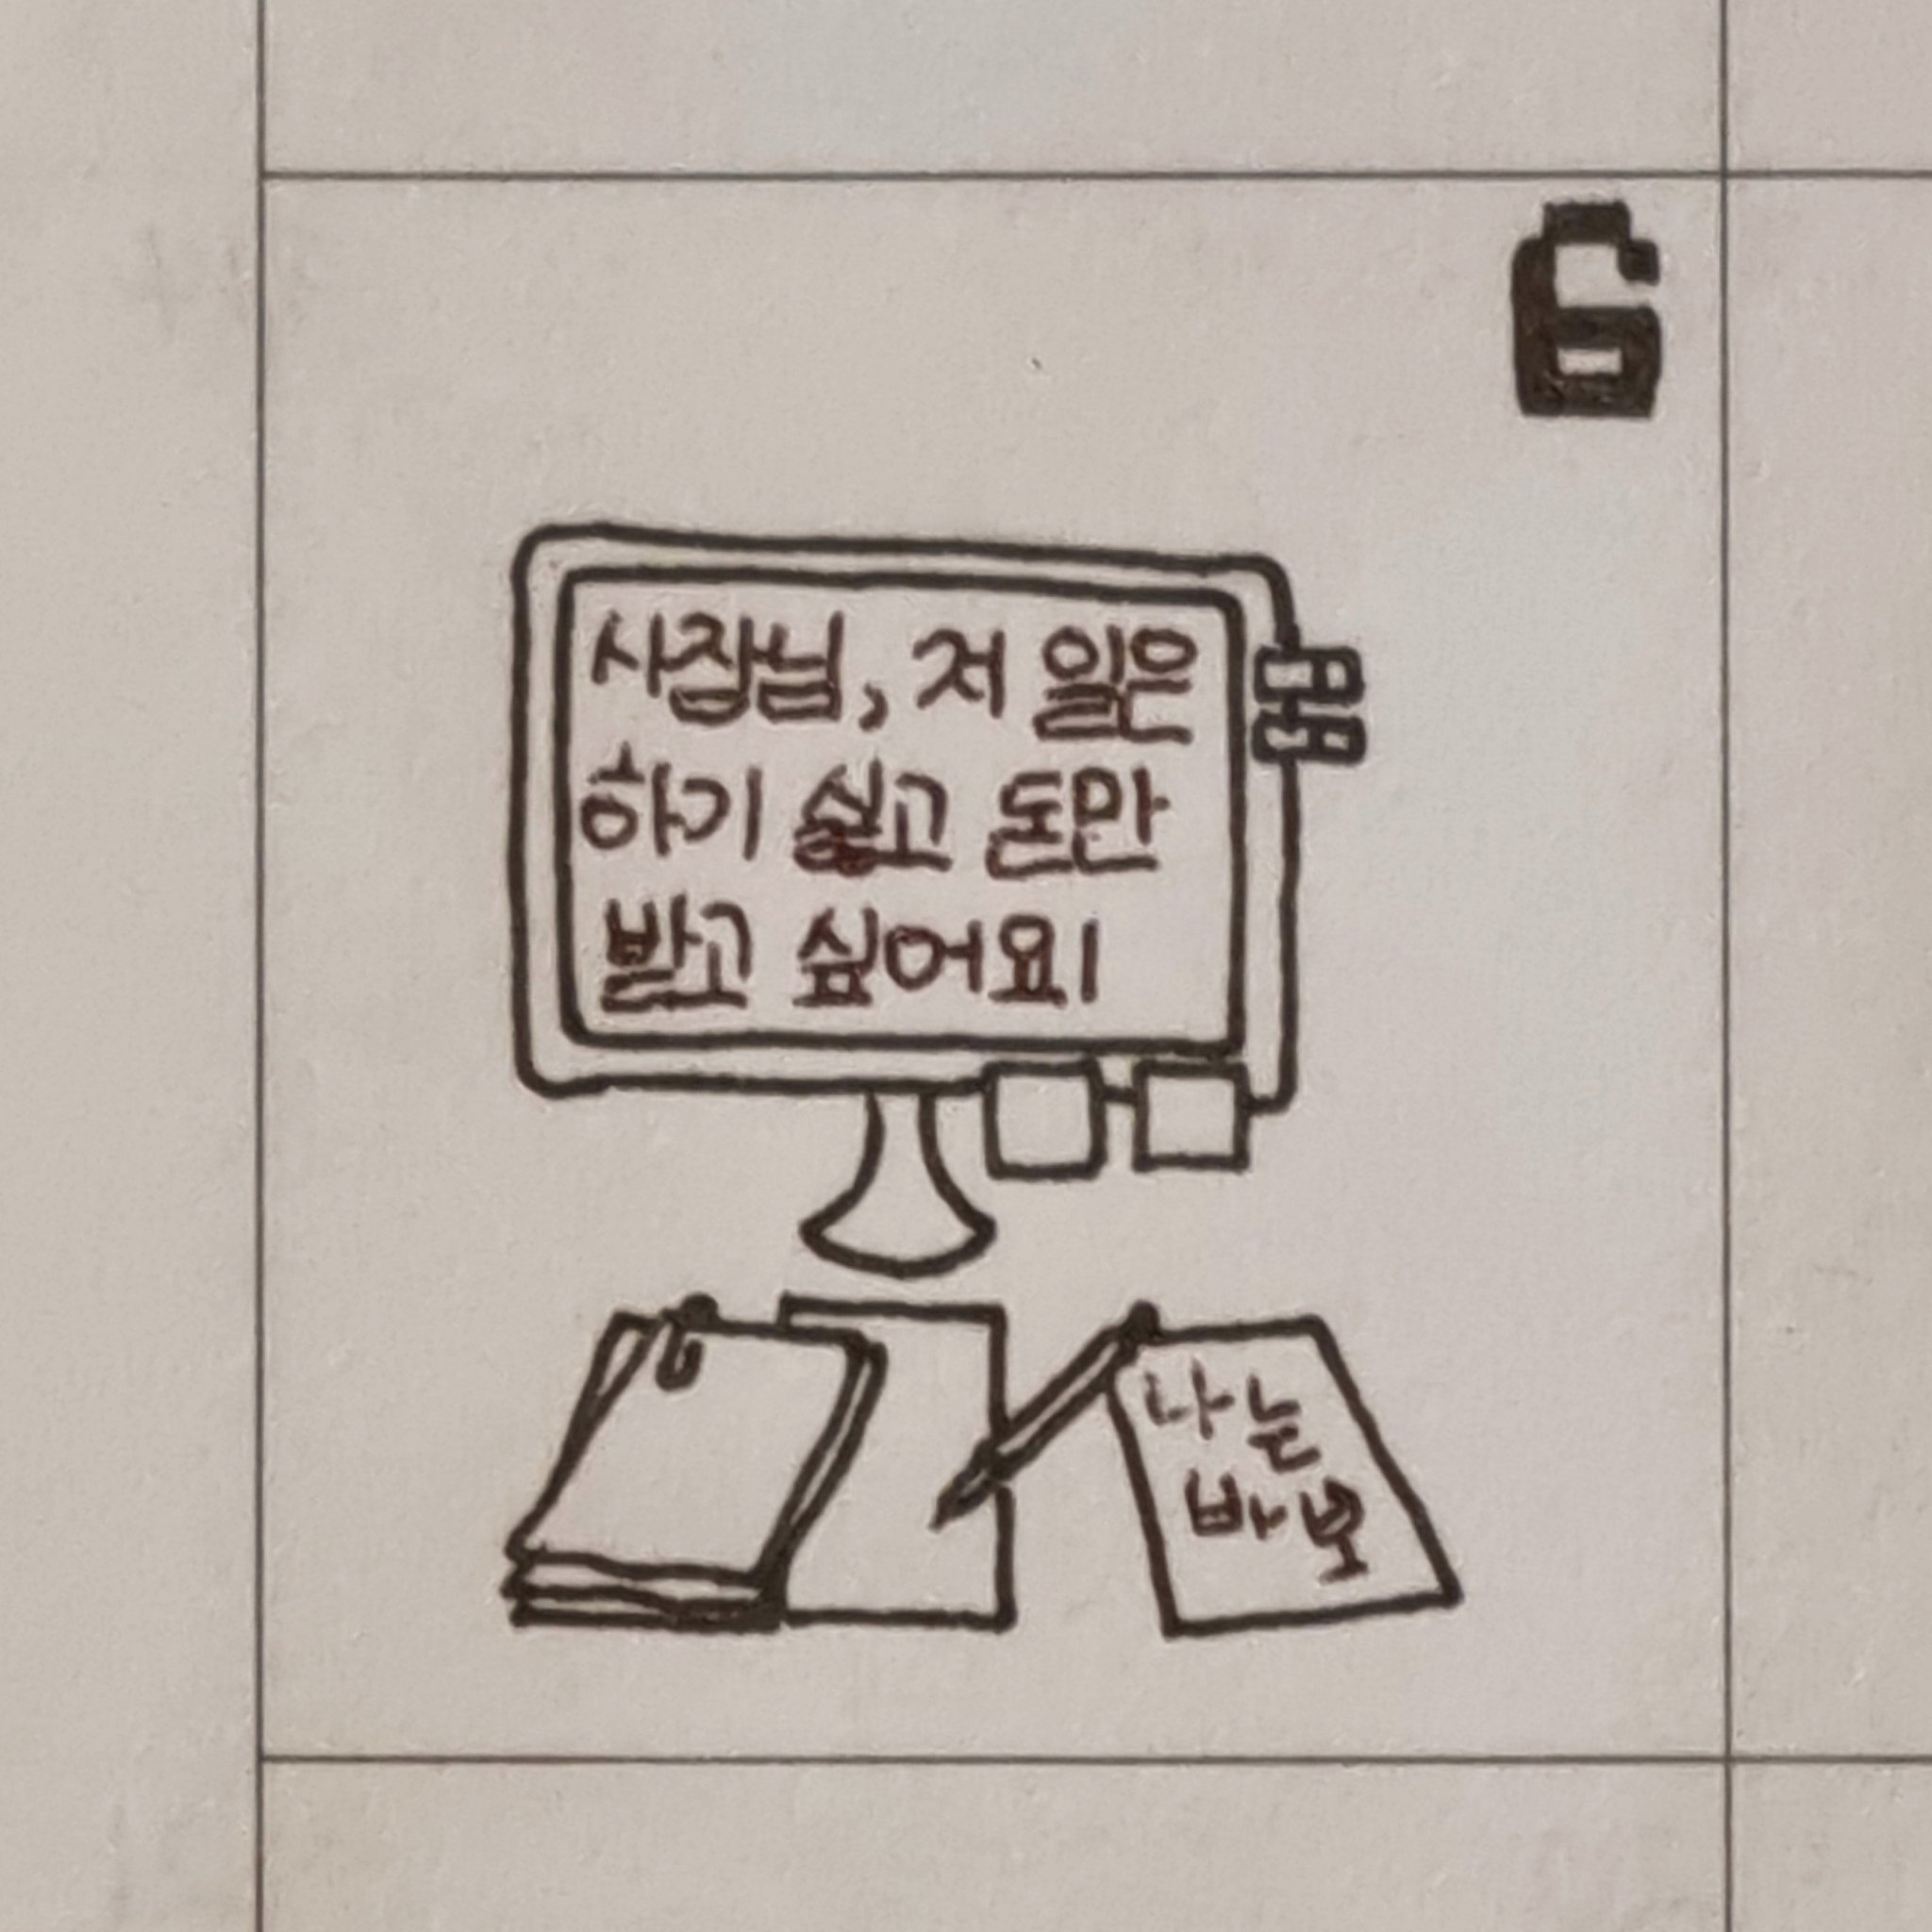 6
사장님, 저 일은
하기 싫고 돈만
받고 싶어요!
나는
바보